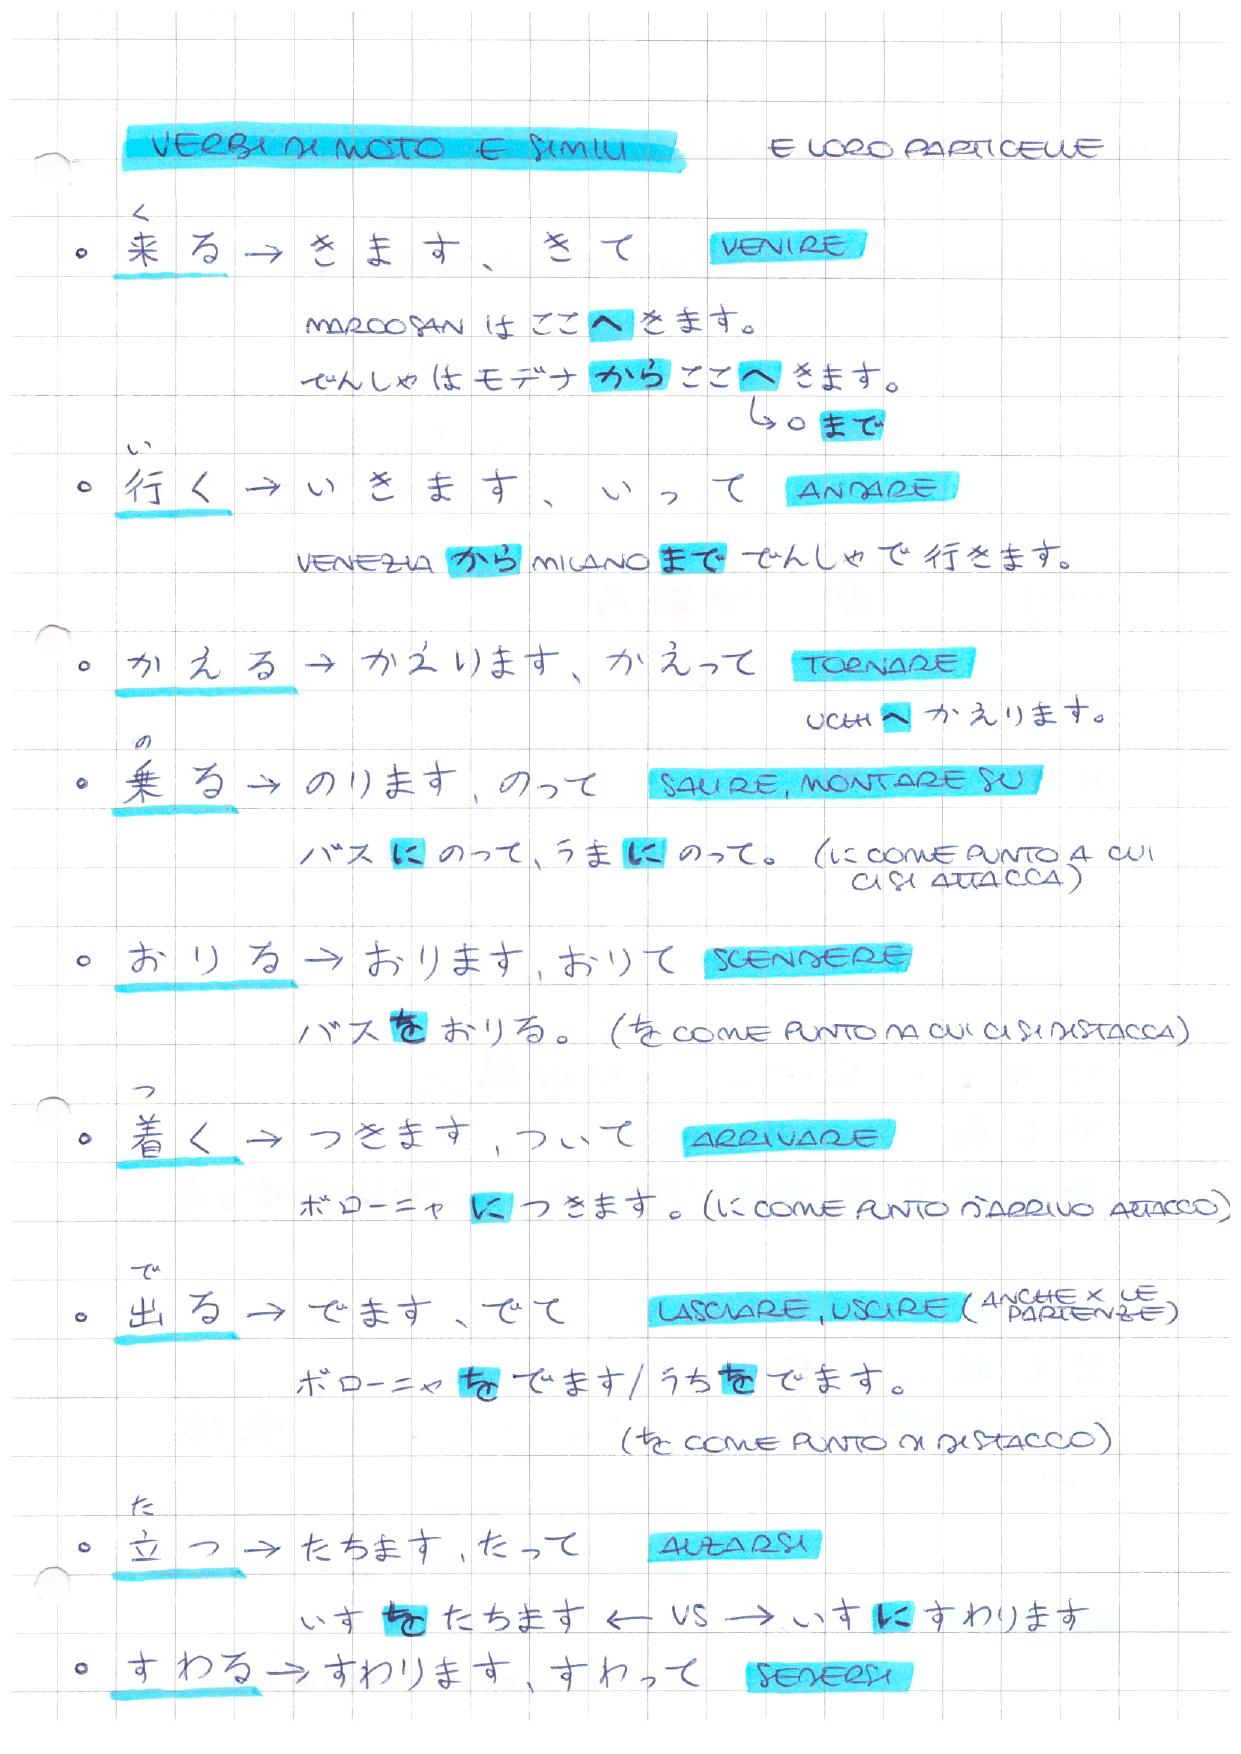 VERBI DI MOTO E SIMILI E LORO PARTICELLE
く
• 来る → きます、きて VENIRE
MARCOSAN はここへきます。
でんしゃはモデナからここへきます。
↳ O まで
い
• 行く → いきます、いって ANDARE
VENEZIA から MILANO まで でんしゃで行きます。
• かえる → かえります、かえって TORNARE
UCHI へ かえります。
の
• 乗る → のります、のって SALIRE, MONTARE SU
バスにのって、うまにのって。(に COME PUNTO A CUI
CI SI ATTACCA)
• おりる → おります、おりて SCENDERE
バスをおりる。(を COME PUNTO DA CUI CI SI DISTACCA)
つ
• 着く → つきます、ついて ARRIVARE
ボローニャにつきます。(に COME PUNTO D'ARRIVO ATTACCO)
で
• 出る → でます、でて LASCIARE, USCIRE (ANCHE X LE
PARTENZE)
ボローニャをでます/うちをでます。
(を COME PUNTO DI DISTACCO)
た
• 立つ → たちます、たって ALZARSI
いすをたちます ← VS → いすにすわります
• すわる → すわります、すわって SEDERSI